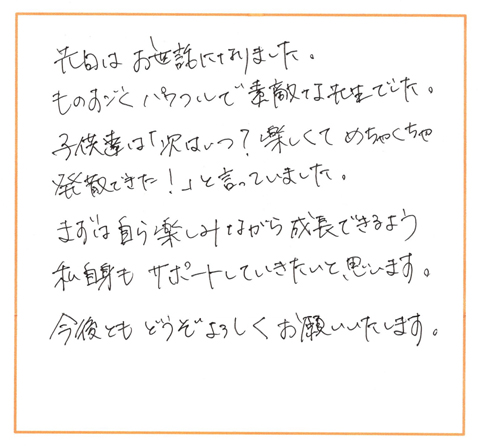 先日はお世話になりました。
ものすごくパワフルで素敵な先生でした。
子供達は「次はいつ？楽しくてめちゃくちゃ
発散できた！」と言っていました。
まずは自ら楽しみながら成長できるよう
私自身もサポートしていきたいと、思います。
今後ともどうぞよろしくお願いいたします。